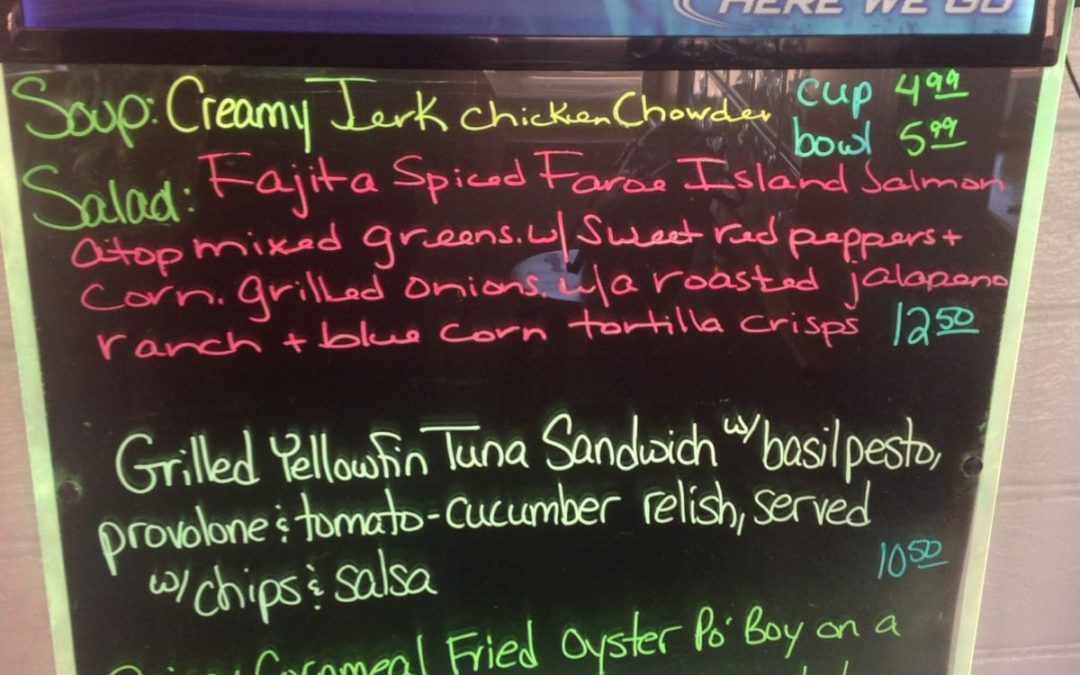 HERE WE GO
Soup: Creamy Jerk chicken Chowder cup 4.99
bowl 5.99
Salad: Fajita Spiced Faroe Island Salmon
atop mixed greens. w/ Sweet red peppers +
corn. grilled onions. w/a roasted jalapeno
ranch + blue corn tortilla crisps 12.50
Grilled Yellowfin Tuna Sandwich w/ basil pesto,
provolone & tomato-cucumber relish, served
w/ chips & salsa 10.50
Cornmeal Fried Oyster Po' Boy on a